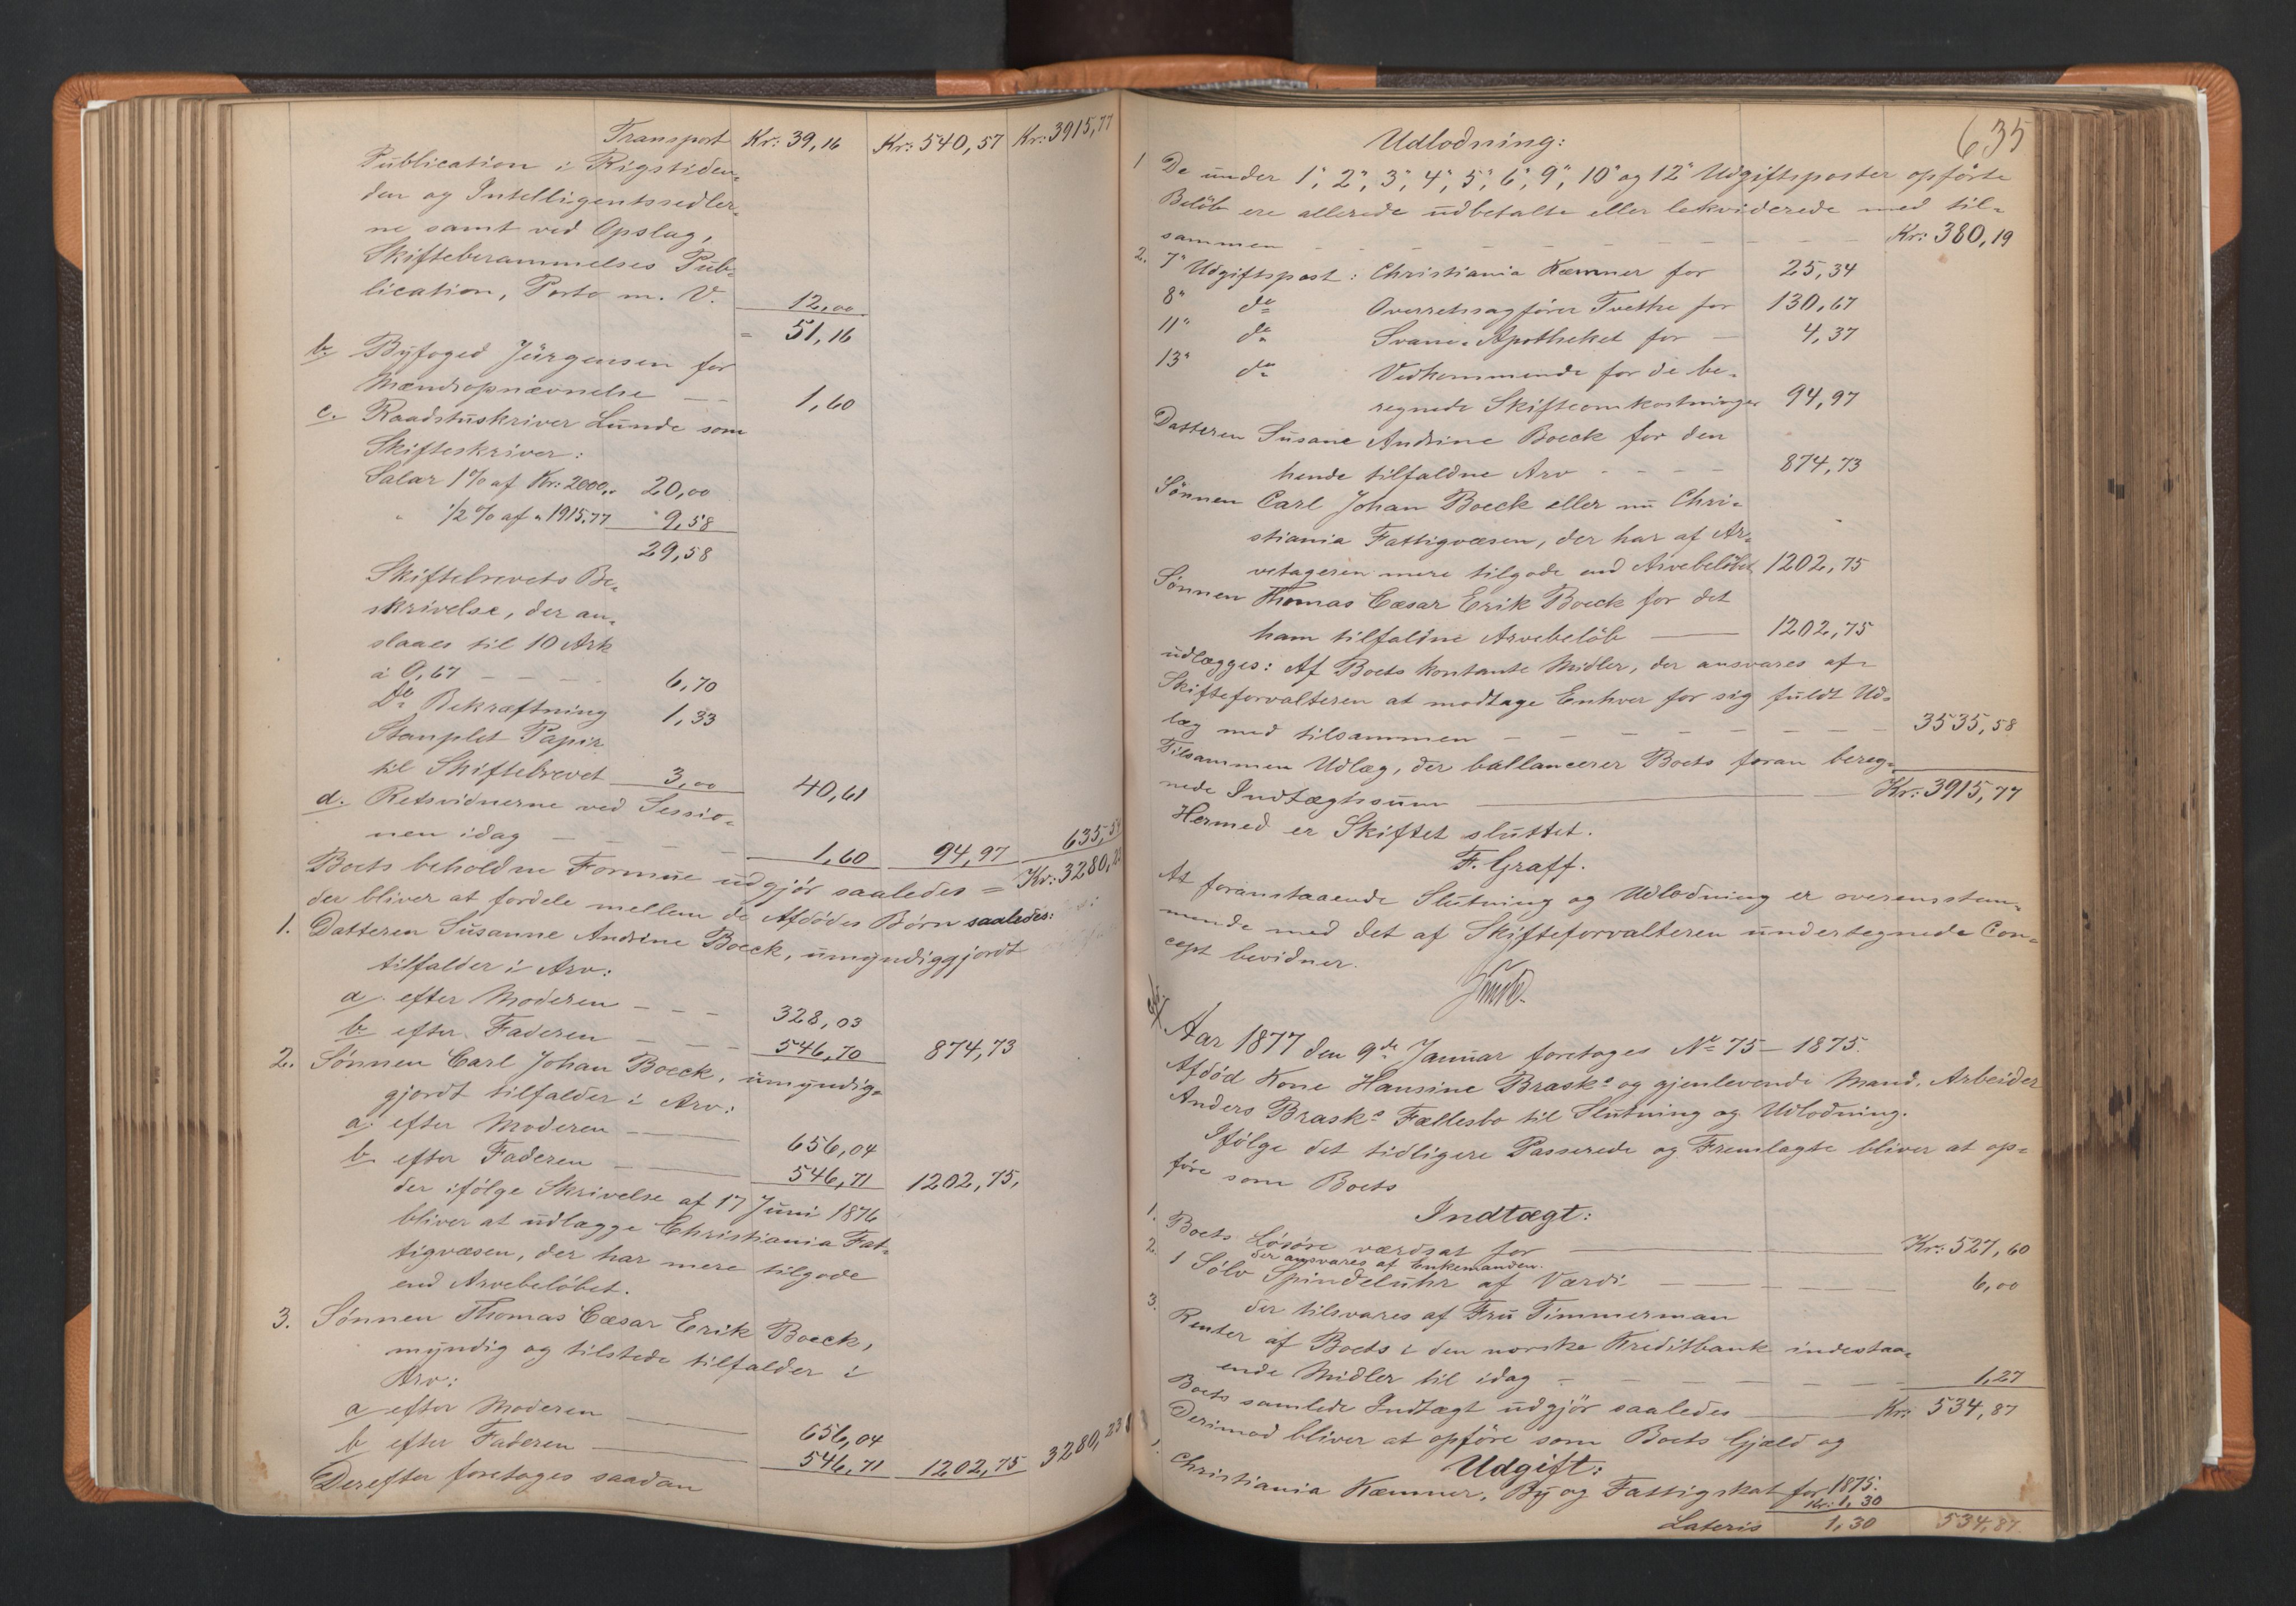 Transport Kr: 39,16 Kr: 540,57 Kr: 3915,77
Publication i Rigstiden-
den og Intelligentssedler-
ne samt ved Opslag,
Skifteberammelses Pub-
lication, Porto m. V. 12,00
= 51,16
b. Byfoged Jürgensen for
Mændsopnævnelse — — 1,60
c. Raadstuskriver Lunde som
Skifteskriver:
Salær 1% af Kr: 2000,.. 20,00
" 1/2 % af " 1915,77 " 9,58
29,58
Skiftebrevets Be-
skrivelse, der an-
slaaes til 10 Ark
à 0,67 — — — 6,70
Do Bekræftning 1,33
Stemplet Papir
til Skiftebrevet 3,00 40,61
d. Retsvidnerne ved Sessio-
nen idag — — — — 1,60 94,97 635,54
Boets beholdne Formue udgjør saaledes = Kr: 3280,23
der bliver at fordele mellem de Afdødes Børn saaledes:
1. Datteren Susanne Andrine Boeck, umyndiggjordt
tilfalder i Arv:
a. efter Moderen — — — 328,03
b. efter Faderen — — — 546,70 874,73
2. Sønnen Carl Johan Boeck, umyndig-
gjordt tilfalder i Arv:
a. efter Moderen — 656,04
b. efter Faderen — 546,71 1202,75,
der ifølge Skrivelse af 17 Juni 1876
bliver at udlægge Christiania Fat-
tigvæsen, der har mere tilgode
end Arvebeløbet.
3. Sønnen Thomas Cæsar Erik Boeck,
myndig og tilstede tilfalder i
Arv:
a efter Moderen — 656,04
b efter Faderen — 546,71 1202,75 3280,23
Derefter foretoges saadan
635
Udlodning:
1 De under 1", 2", 3", 4", 5", 6", 9", 10" og 12" Udgiftsposter opførte
Beløb ere allerede udbetalte eller lekviderede med til-
sammen — — — — — — — — Kr: 380,19
2. 7" Udgiftspost: Christiania Kæmner for 25,34
8" do Overretssagfører Tvethe for 130,67
11" do Svane-Apotheket for — 4,37
13" do Vedkommende for de be-
regnede Skifteomkostninger 94,97
Datteren Susane Andrine Boeck for den
hende tilfaldne Arv — — — — 874,73
Sønnen Carl Johan Boeck eller nu Chri-
stiania Fattigvæsen, der har af Ar-
vetageren mere tilgode end Arvebeløbet 1202,75
Sønnen Thomas Cæsar Erik Boeck for det
ham tilfaldne Arvebeløb — 1202,75
udlægges: Af Boets kontante Midler, der ansvares af
Skifteforvalteren at modtage Enhver for sig fuldt Ud-
læg med tilsammen — — — — — — — 3535,58
Tilsammen Udlæg, der ballancerer Boets foran bereg-
nede Indtægtssum — Kr: 3915,77
Hermed er Skiftet sluttet.
F. Graff.
At foranstaaende Slutning og Udlodning er overensstem-
mende med det af Skifteforvalteren undertegnede Con-
cept bevidner.
Lunde
Aar 1877 den 9de Januar foretoges No 75 – 1875.
Afdød Kone Hansine Brasks og gjenlevende Mand, Arbeider
Anders Brasks Fællesbo til Slutning og Udlodning.
Ifølge det tidligere Passerede og Fremlagte bliver at op-
føre som Boets
Indtægt:
1. Boets Løsøre værdsat for — Kr: 527,60
der ansvares af Enkemanden.
2. 1 Sølv Spindeluhr af Værdi — — — 6,00
der tilsvares af Fru Timmerman
3. Renter af Boets i den norske Kreditbank indestaa-
ende Midler til idag — — — — — — — 1,27
Boets samlede Indtægt udgjør saaledes — Kr: 534,87
Derimod bliver at opføre som Boets Gjæld og
Udgift:
1. Christiania Kæmner, By og Fattigskat for 1875:
Kr: 1,30
Lateris 1,30 534,87